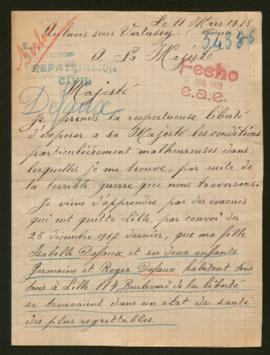 Le 11 Mars 1918
Aulnois sous Vertuzey
54336
Berlin
A Sa Majesté
REPATRIACION
CIVIL
Fecho
1918
e.a.e.
Majesté
Defaux
Je prends la respectueuse liberté
d'exposer à sa Majesté les conditions
particulièrement malheureuses dans
lesquelles je me trouve, par suite de
la terrible guerre que nous traversons.
Je viens d'apprendre par des évacués
qui ont quitté Lille par convoi du
26 décembre 1917 dernier, que ma fille
Isabelle Defaux et ses deux enfants
Germaine et Roger Defaux habitant tous
trois à Lille 174 Boulevard de la liberté
se trouvaient dans un état de santé
des plus regrettables.